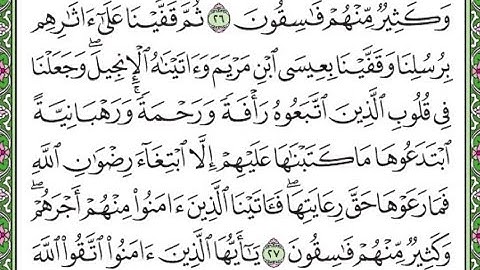 وَكَثِيرٌ مِّنْهُمْ فَٰسِقُونَ ٢٦ ثُمَّ قَفَّيْنَا عَلَىٰٓ ءَاثَٰرِهِم
بِرُسُلِنَا وَقَفَّيْنَا بِعِيسَى ٱبْنِ مَرْيَمَ وَءَاتَيْنَٰهُ ٱلْإِنجِيلَۖ وَجَعَلْنَا
فِى قُلُوبِ ٱلَّذِينَ ٱتَّبَعُوهُ رَأْفَةً وَرَحْمَةًۚ وَرَهْبَانِيَّةً
ٱبْتَدَعُوهَا مَا كَتَبْنَٰهَا عَلَيْهِمْ إِلَّا ٱبْتِغَآءَ رِضْوَٰنِ ٱللَّهِ
فَمَا رَعَوْهَا حَقَّ رِعَايَتِهَاۖ فَـَٔاتَيْنَا ٱلَّذِينَ ءَامَنُوا۟ مِنْهُمْ أَجْرَهُمْۖ
وَكَثِيرٌ مِّنْهُمْ فَٰسِقُونَ ٢٧ يَٰٓأَيُّهَا ٱلَّذِينَ ءَامَنُوا۟ ٱتَّقُوا۟ ٱللَّهَ